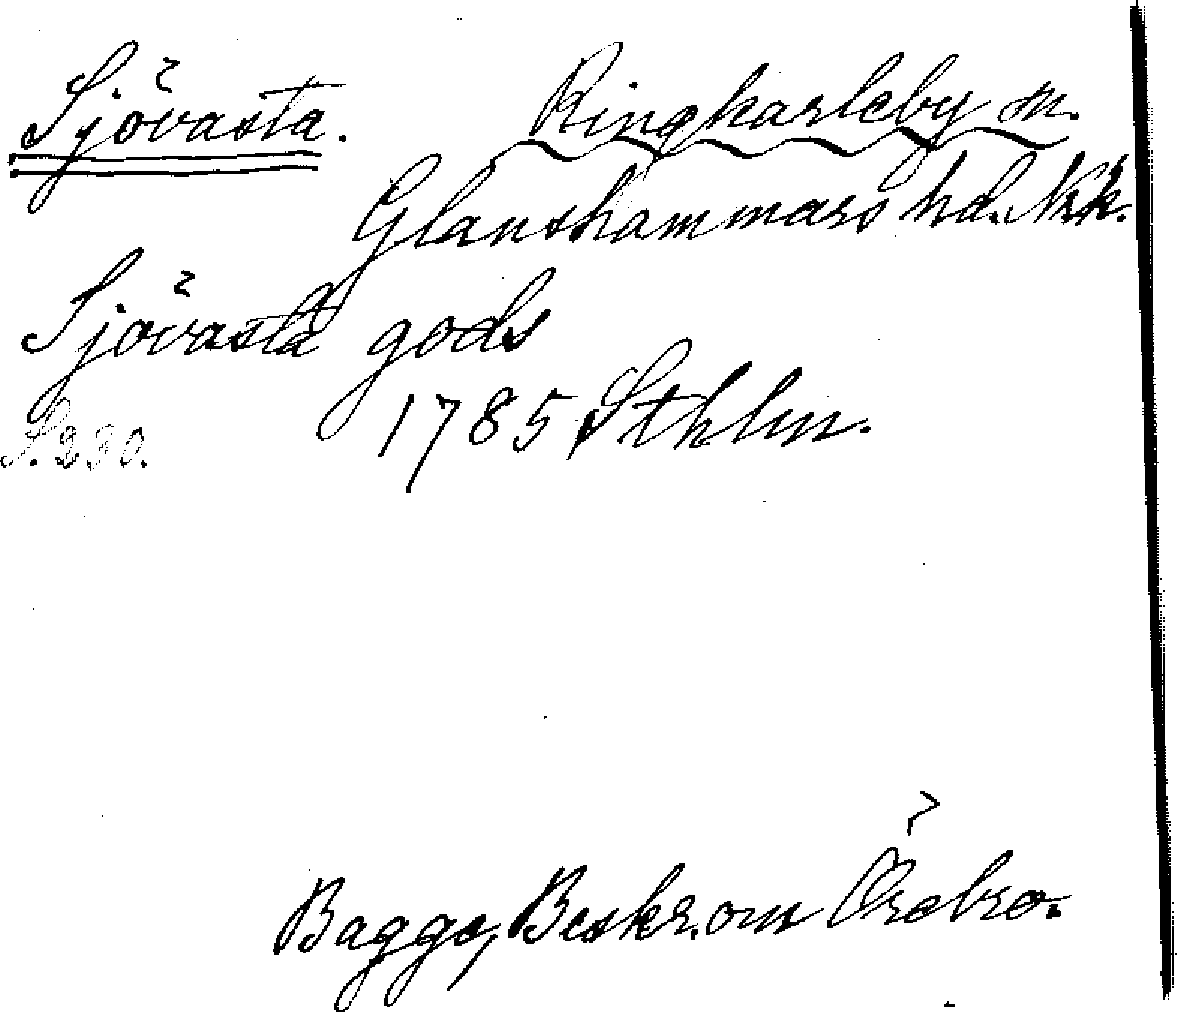 Sjövasta. Ringkarleby sn.
Glanshammars hd. Nrk.
Sjövasta gods
1785 Sthlm.
S. 230.
Bagge, Beskr. om Örebro.